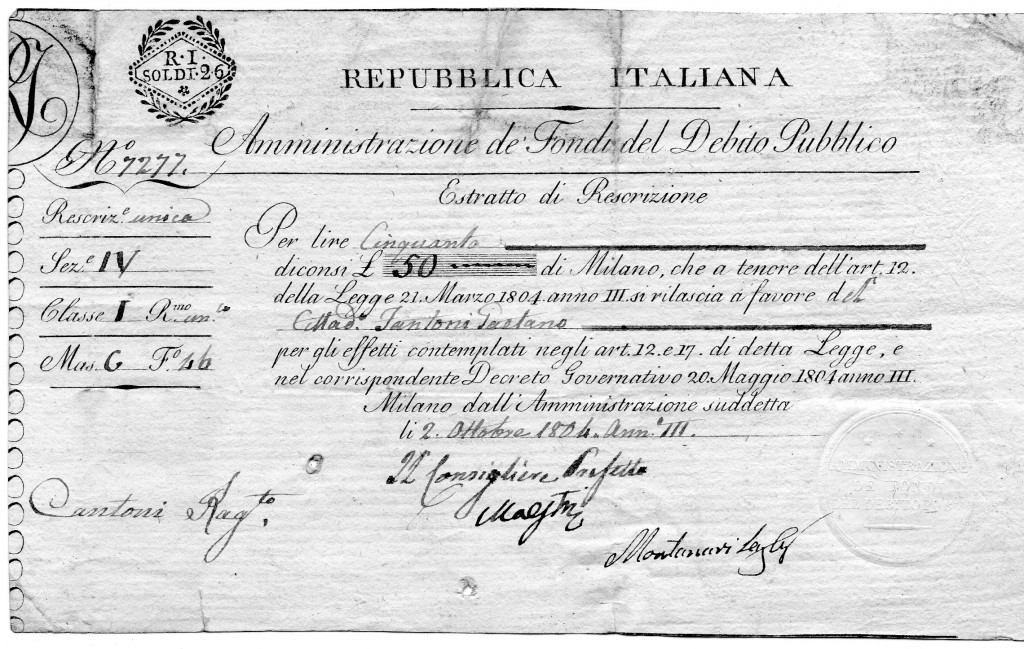 R · I ·
SOLDI · 26
REPUBBLICA ITALIANA
N.º 7277.
Amministrazione de' Fondi del Debito Pubblico
Estratto di Rescrizione
Rescriz.e unica
Sez.e IV
Classe I R.mo un.co
Mas. G F.º 46
Per lire Cinquanta
diconsi £ 50 di Milano, che a tenore dell'art. 12.
della Legge 21. Marzo 1804. anno III. si rilascia a favore del
Cittad.º Fantoni Gaetano
per gli effetti contemplati negli art. 12. e 17. di detta Legge, e
nel corrispondente Decreto Governativo 20. Maggio 1804 anno III.
Milano dall'Amministrazione suddetta
li 2. Ottobre 1804. Ann.º III.
Il Consigliere Prefetto
Maestri
Cantoni Rag.to
Montanari